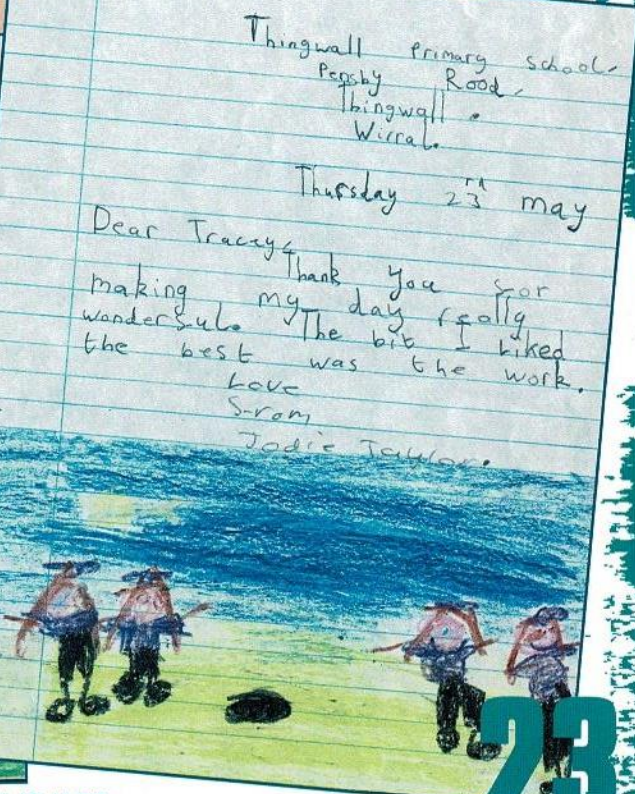 Thingwall Primary School,
Pensby Road,
Thingwall.
Wirral.
Thursday 23rd may
Dear Tracey,
Thank you for
making my day really
wonderful. The bit I liked
the best was the work.
Love
from
Jodie Taylor.
23